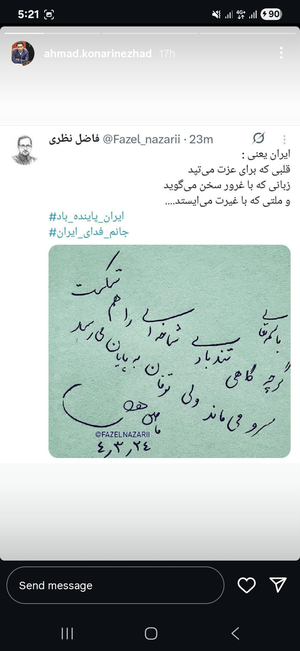 5:21
4G+
90
ahmad.konarinezhad 17h
فاضل نظری @Fazel_nazarii · 23m
ایران یعنی :
قلبی که برای عزت می‌تپد
زبانی که با غرور سخن می‌گوید
و ملتی که با غیرت می‌ایستد....
#ایران_پاینده_باد
#جانم_فدای_ایران
گرچه گاهی تندبادی شاخه‌ای را هم شکست
سرو می‌ماند ولی توفان به پایان می‌رسد
©FAZELNAZARII
٤,٣,٢٤
Send message